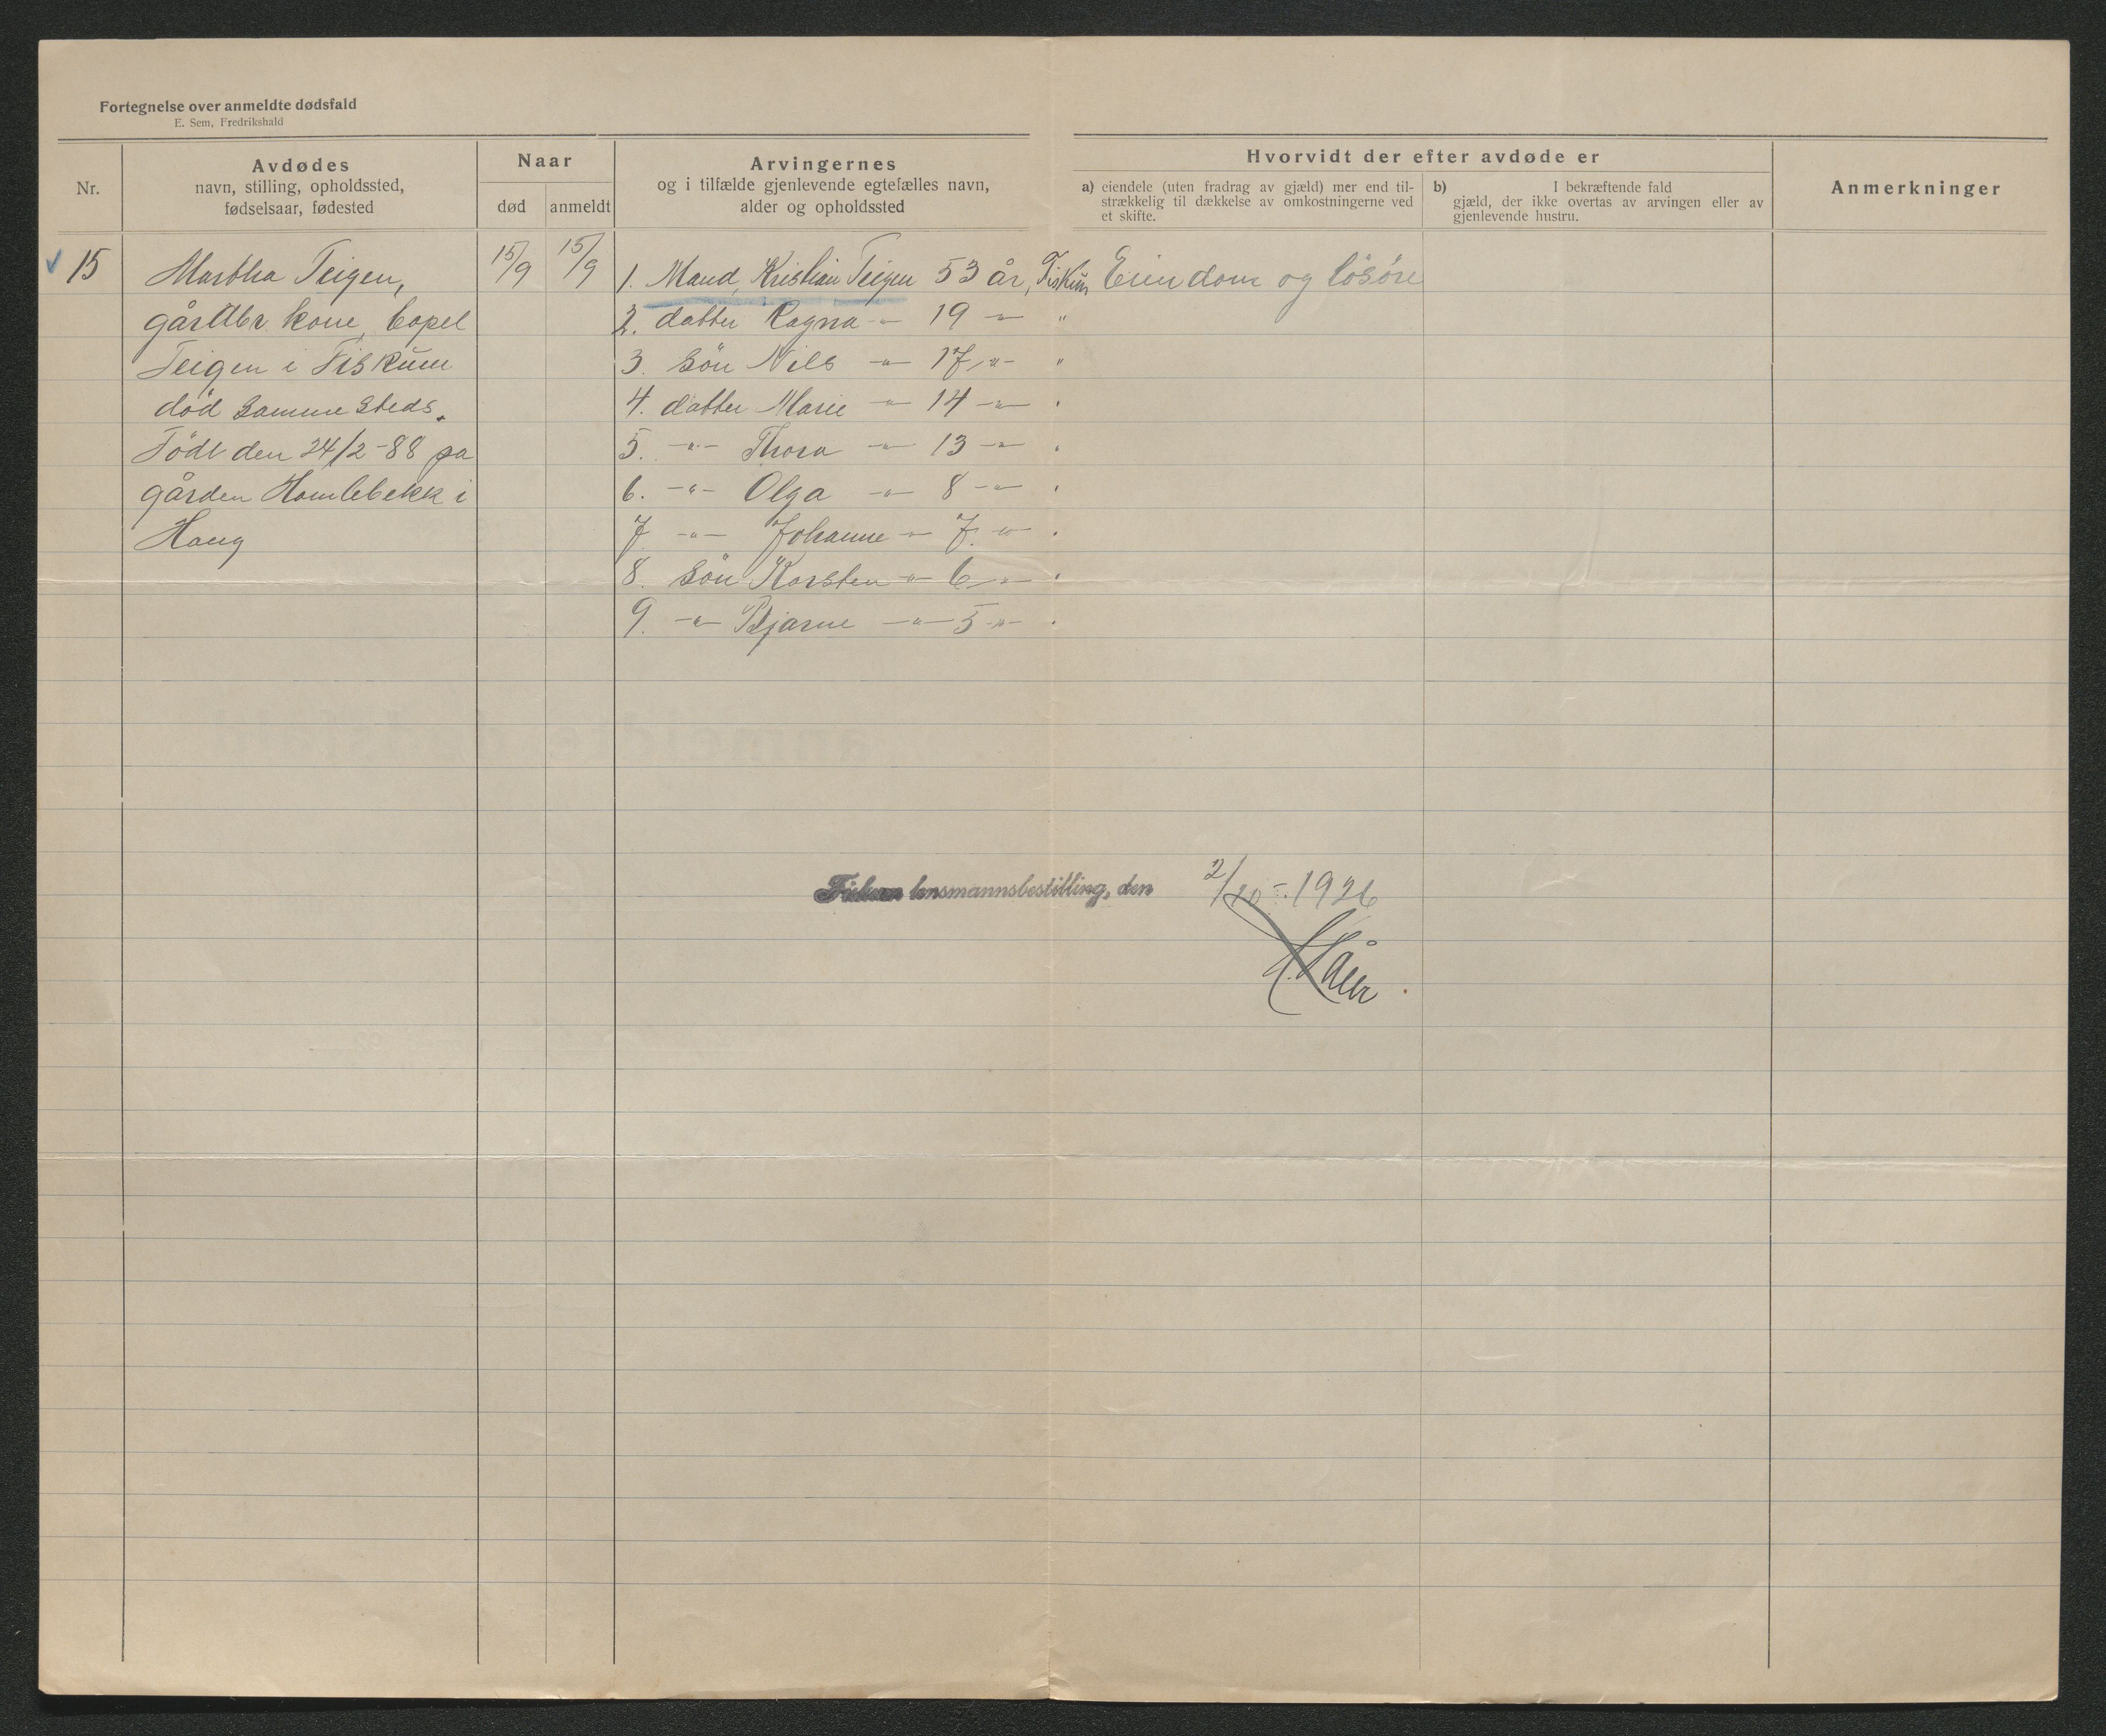 Fortegnelse over anmeldte dødsfald
E. Sem, Fredrikshald
Nr.
Avdødes
navn, stilling, opholdssted,
fødselsaar, fødested
Naar
død
anmeldt
Arvingernes
og i tilfælde gjenlevende egtefælles navn,
alder og opholdssted
Hvorvidt der efter avdøde er
a) eiendele (uten fradrag av gjæld) mer end til-
strækkelig til dækkelse av omkostningerne ved
et skifte.
b) I bekræftende fald
gjæld, der ikke overtas av arvingen eller av
gjenlevende hustru.
Anmerkninger
15
Martha Teigen,
gårdbr. kone, bopel
Teigen i Fiskum
död samme steds.
Födt den 24/2-88 på
gården Homlebekk i
Haug
15/9
15/9
1. Mand, Kristian Teigen 53 år, Fiskum
2. datter Ragna -"- 19 -"- "
3. Sön Nils -"- 17 -"- "
4. datter Marie -"- 14 -"- "
5. -"- Thora -"- 13 -"- "
6. -"- Olga -"- 8 -"- "
7 -"- Johanne -"- 7. -"- "
8. Sön Karsten -"- 6 -"- "
9. -"- Bjarne -"- 5 -"- "
Eiendom og lösöre
Fiskum lensmannsbestilling, den 2/10-1926